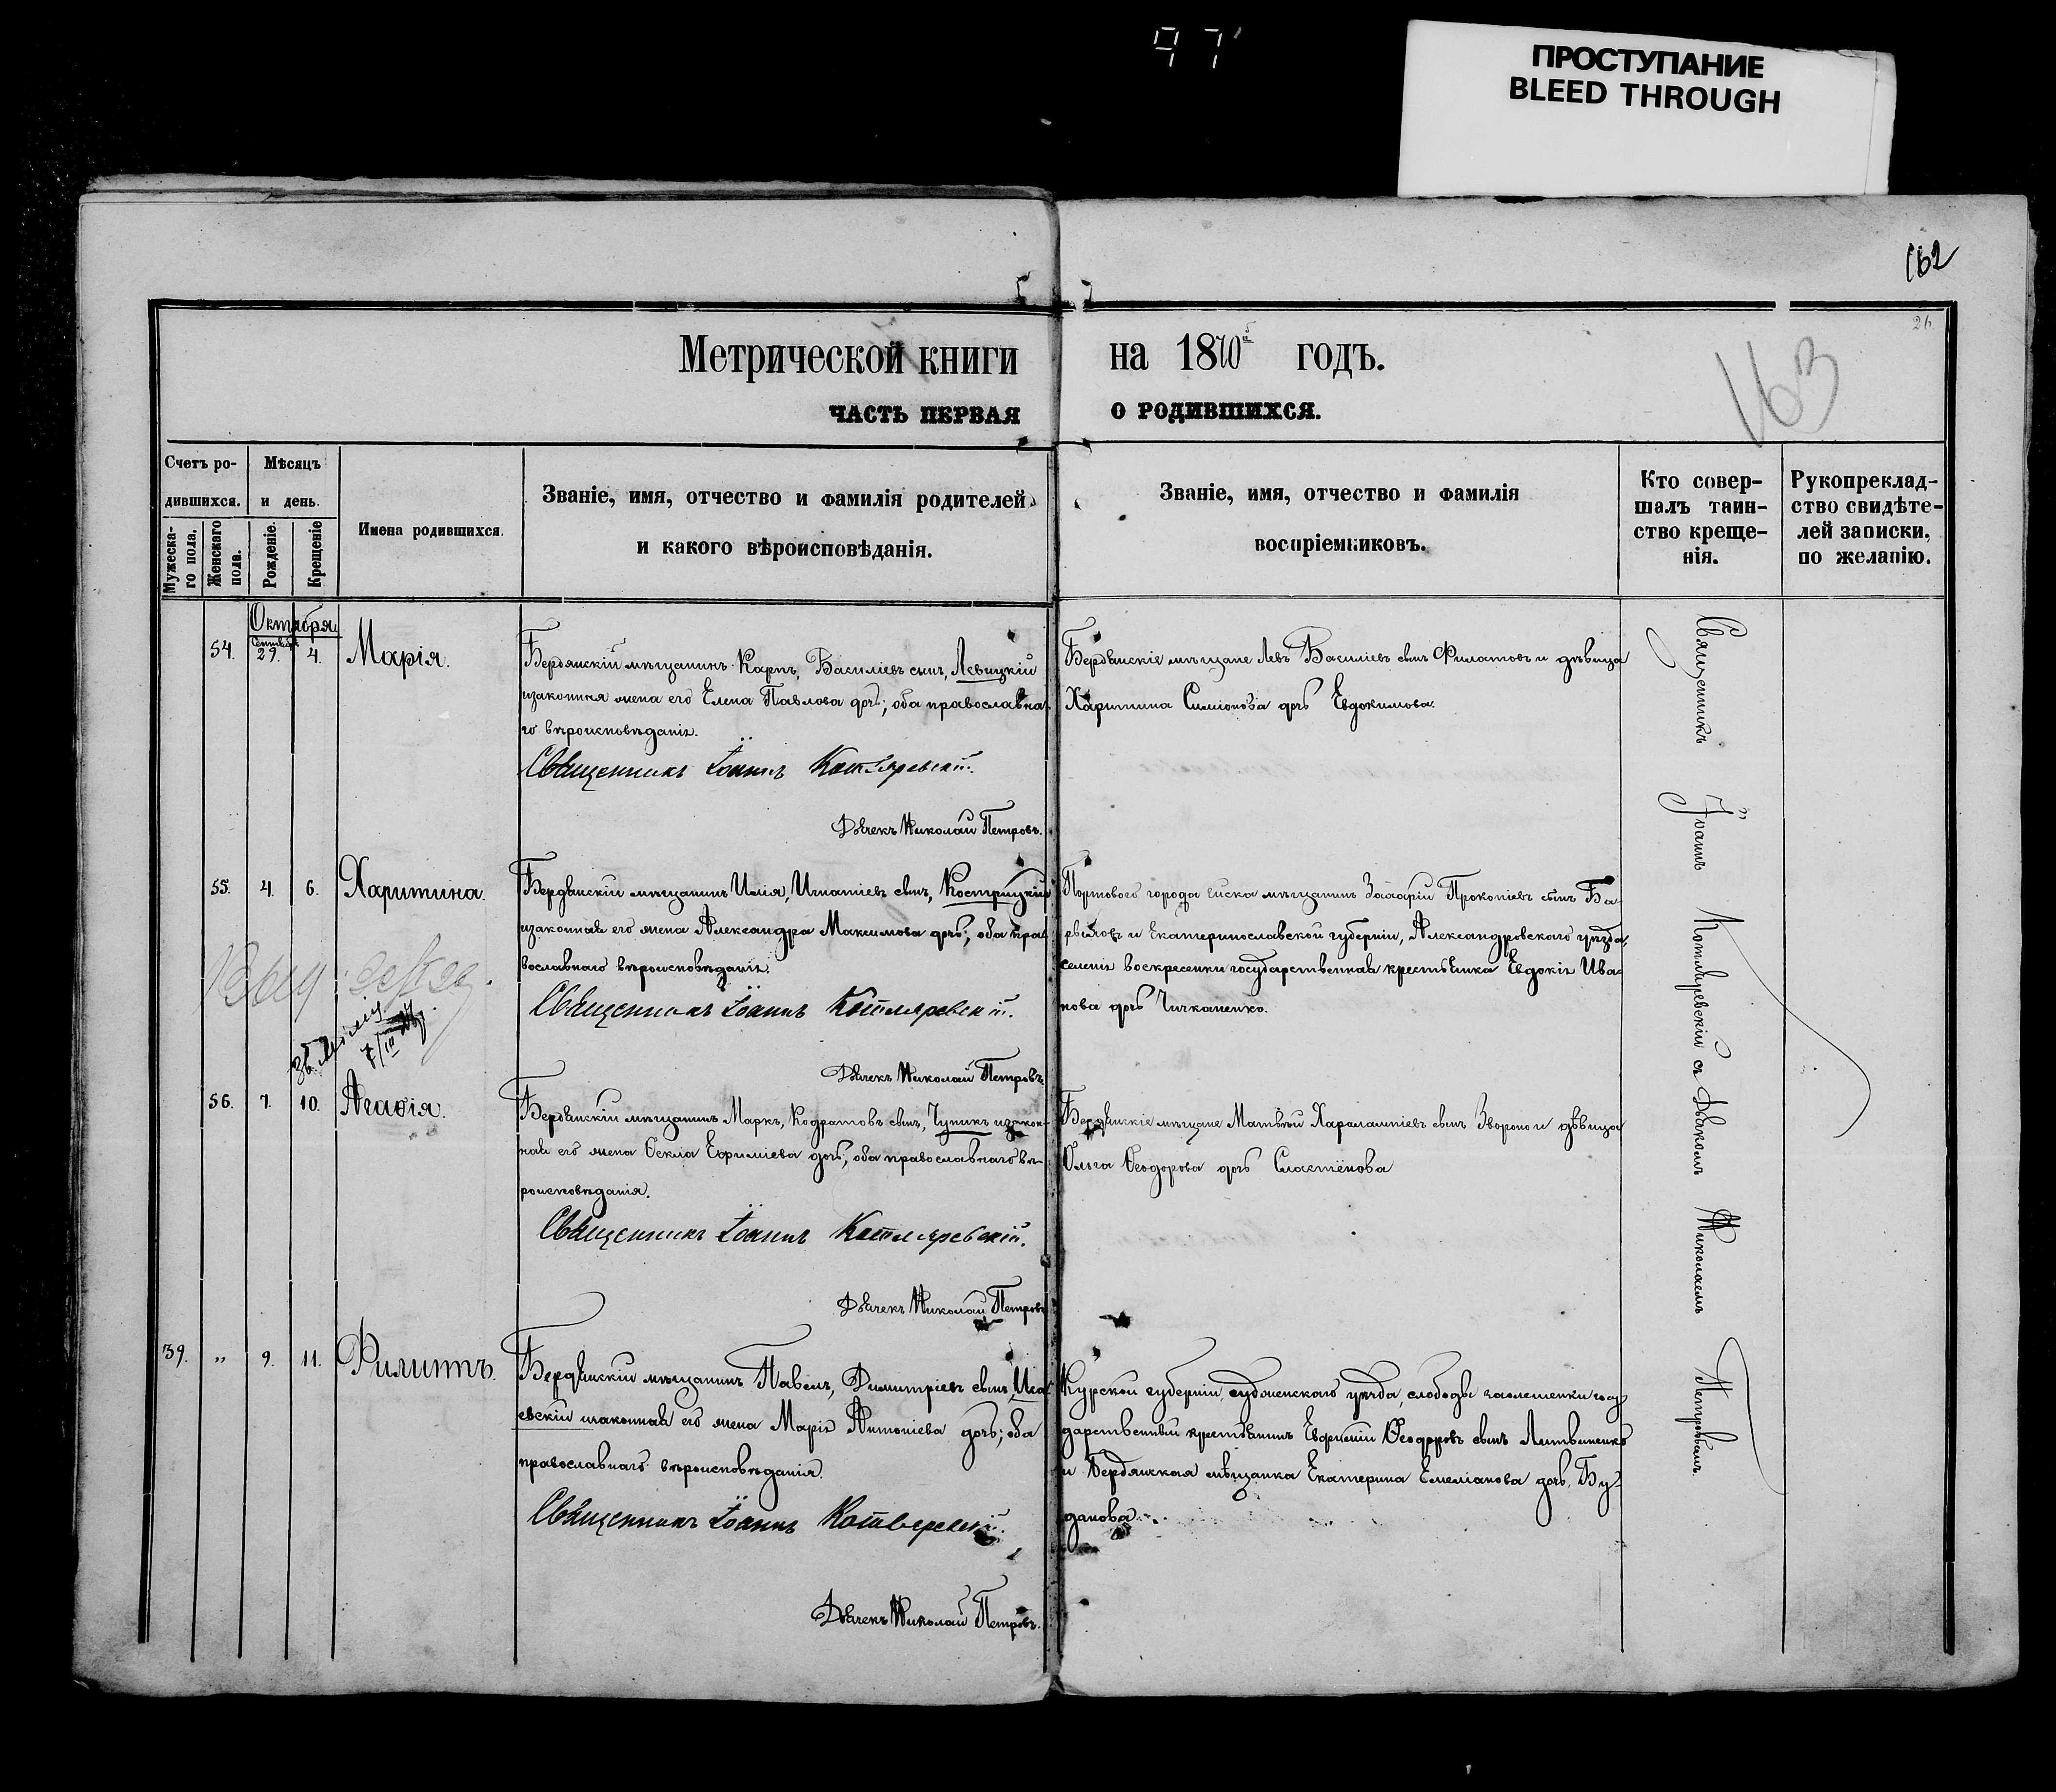 97
ПРОСТУПАНИЕ
BLEED THROUGH
162
26
Метрической книги на 1870 годъ.
163
ЧАСТЬ ПЕРВАЯ О РОДИВШИХСЯ.
Счетъ ро-
дившихся.
Мѣсяцъ
и день.
Мужеска-
го пола.
Женскаго
пола.
Рожденіе.
Крещеніе
Имена родившихся.
Званіе, имя, отчество и фамилія родителей
и какого вѣроисповѣданія.
Званіе, имя, отчество и фамилія
воспріемниковъ.
Кто совер-
шалъ таин-
ство креще-
нія.
Рукоприклад-
ство свидѣте-
лей записки,
по желанію.
Октября
Сентября
54. 29. 4. Марія.
Бердянскій мѣщанинъ Карпъ, Василіевъ сынъ, Левицкій
изаконная жена его Елена Павлова дочь; оба православна-
го вѣроисповѣданія.
Священникъ Іоаннъ Котляревскій.
Дьячекъ Николай Петровъ.
Бердянскіе мѣщане Левъ Василіевъ сынъ Филатовъ и дѣвица
Харитина Симіонова дочь Евдокимова.
55. 4. 6. Харитина.
Бердянскій мѣщанинъ Илія, Игнатіевъ сынъ, Кострицкій
изаконная его жена Александра Максимова дочь; оба пра-
вославнаго вѣроисповѣданія.
Священникъ Іоаннъ Котляревскій.
Дьячекъ Николай Петровъ.
Портового города Ейска мѣщанинъ Захарій Прокопіевъ сынъ Ба-
и Екатеринославской губерніи, Александровского уѣзда,
селенія Воскресенки государственная крестьянка Евдокія Ива-
нова дочь
56. 7. 10. Агафія.
Бердянскій мѣщанинъ Маркъ, Кодратовъ сынъ, Чупикъ изакон-
ная его жена Ѳекла Ефиміева дочь; оба православнаго вѣ-
роисповѣданія.
Священникъ Іоаннъ Котляревскій.
Дьячекъ Николай Петровъ
Бердянскіе мѣщане Матвѣй Харалампіевъ сынъ и дѣвица
Ольга Ѳеодорова дочь Сластёнова
39. " 9. 11. Филиппъ.
Бердянскій мѣщанинъ Павелъ, Димитріевъ сынъ,
изаконная его жена Марія Антоніева дочь; оба
православнаго вѣроисповѣданія.
Священникъ Іоаннъ Котляревскій.
Дьячекъ Николай Петровъ.
Курской губерніи, уѣзда, слободы госу-
дарственный крестьянинъ Евфимій Ѳеодоровъ сынъ Литвиненко
и Бердянская мѣщанка Екатерина Емеліанова дочь Бу-
данова.
Священникъ Іоаннъ Котляревскій съ Дьячкомъ Николаемъ Петровымъ.